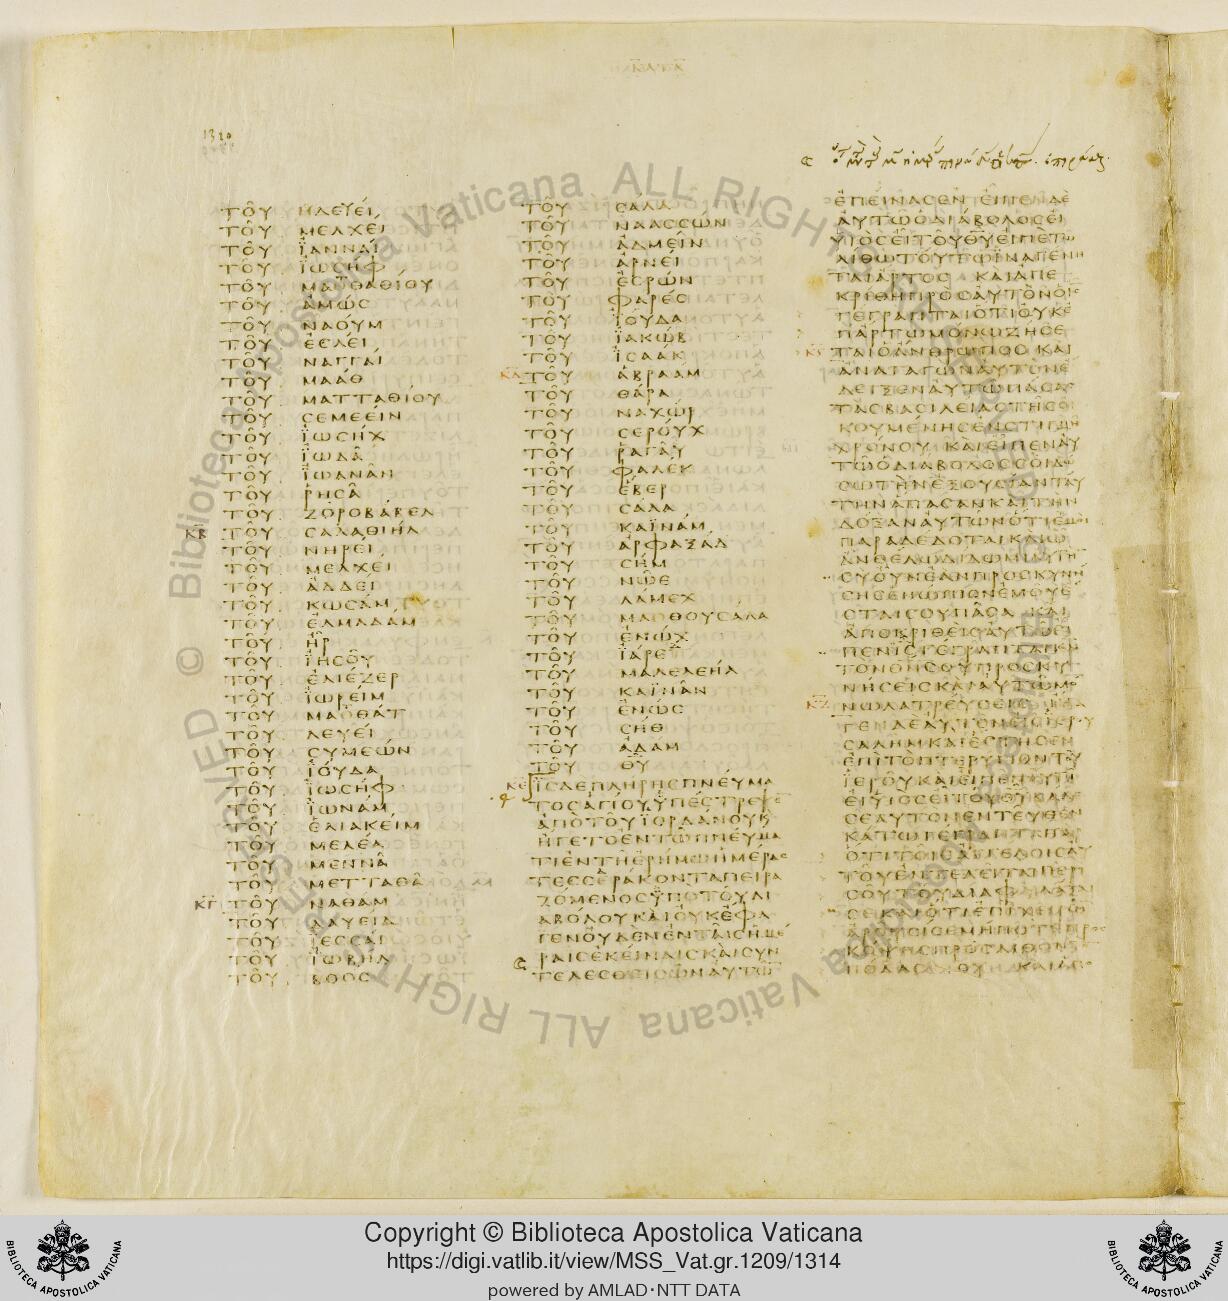 ΚΑΤΑ
1310
ΤΟΥ ΗΛΕΥΕΙ
ΤΟΥ ΜΕΛΧΕΙ
ΤΟΥ ΙΑΝΝΑΙ
ΤΟΥ ΙΩΣΗΦ
ΤΟΥ ΜΑΤΘΑΘΙΟΥ
ΤΟΥ ΑΜΩΣ
ΤΟΥ ΝΑΟΥΜ
ΤΟΥ ΕΣΛΕΙ
ΤΟΥ ΝΑΓΓΑΙ
ΤΟΥ ΜΑΑΘ
ΤΟΥ ΜΑΤΤΑΘΙΟΥ
ΤΟΥ ΣΕΜΕΕΙΝ
ΤΟΥ ΙΩΣΗΧ
ΤΟΥ ΙΩΔΑ
ΤΟΥ ΙΩΑΝΑΝ
ΤΟΥ ΡΗΣΑ
ΤΟΥ ΖΟΡΟΒΑΒΕΛ
ΚΒ ΤΟΥ ΣΑΛΑΘΙΗΛ
ΤΟΥ ΝΗΡΕΙ
ΤΟΥ ΜΕΛΧΕΙ
ΤΟΥ ΑΔΔΕΙ
ΤΟΥ ΚΩΣΑΜ
ΤΟΥ ΕΛΜΑΔΑΜ
ΤΟΥ ΗΡ
ΤΟΥ ΙΗΣΟΥ
ΤΟΥ ΕΛΙΕΖΕΡ
ΤΟΥ ΙΩΡΕΙΜ
ΤΟΥ ΜΑΘΘΑΤ
ΤΟΥ ΛΕΥΕΙ
ΤΟΥ ΣΥΜΕΩΝ
ΤΟΥ ΙΟΥΔΑ
ΤΟΥ ΙΩΣΗΦ
ΤΟΥ ΙΩΝΑΜ
ΤΟΥ ΕΛΙΑΚΕΙΜ
ΤΟΥ ΜΕΛΕΑ
ΤΟΥ ΜΕΝΝΑ
ΤΟΥ ΜΕΤΤΑΘΑ
ΚΓ ΤΟΥ ΝΑΘΑΜ
ΤΟΥ ΔΑΥΕΙΔ
ΤΟΥ ΙΕΣΣΑΙ
ΤΟΥ ΙΩΒΗΛ
ΤΟΥ ΒΟΟΣ
ΤΟΥ ΣΑΛΑ
ΤΟΥ ΝΑΑΣΣΩΝ
ΤΟΥ ΑΔΜΕΙΝ
ΤΟΥ ΑΡΝΕΙ
ΤΟΥ ΕΣΡΩΝ
ΤΟΥ ΦΑΡΕΣ
ΤΟΥ ΙΟΥΔΑ
ΤΟΥ ΙΑΚΩΒ
ΤΟΥ ΙΣΑΑΚ
ΚΔ ΤΟΥ ΑΒΡΑΑΜ
ΤΟΥ ΘΑΡΑ
ΤΟΥ ΝΑΧΩΡ
ΤΟΥ ΣΕΡΟΥΧ
ΤΟΥ ΡΑΓΑΥ
ΤΟΥ ΦΑΛΕΚ
ΤΟΥ ΕΒΕΡ
ΤΟΥ ΣΑΛΑ
ΤΟΥ ΚΑΙΝΑΜ
ΤΟΥ ΑΡΦΑΞΑΔ
ΤΟΥ ΣΗΜ
ΤΟΥ ΝΩΕ
ΤΟΥ ΛΑΜΕΧ
ΤΟΥ ΜΑΘΟΥΣΑΛΑ
ΤΟΥ ΕΝΩΧ
ΤΟΥ ΙΑΡΕΤ
ΤΟΥ ΜΑΛΕΛΕΗΛ
ΤΟΥ ΚΑΙΝΑΝ
ΤΟΥ ΕΝΩΣ
ΤΟΥ ΣΗΘ
ΤΟΥ ΑΔΑΜ
ΤΟΥ ΘΥ
ΚΕ ΙΣΔΕΠΛΗΡΗΣΠΝΕΥΜΑ
ΤΟΣΑΓΙΟΥΥΠΕΣΤΡΕΨΕ
ΑΠΟΤΟΥΙΟΡΔΑΝΟΥΚ
ΗΓΕΤΟΕΝΤΩΠΝΕΥΜΑ
ΤΙΕΝΤΗΕΡΗΜΩΗΜΕΡΑΣ
ΤΕΣΣΕΡΑΚΟΝΤΑΠΕΙΡΑ
ΖΟΜΕΝΟΣΥΠΟΤΟΥΔΙ
ΑΒΟΛΟΥΚΑΙΟΥΚΕΦΑ
ΓΕΝΟΥΔΕΝΕΝΤΑΙΣΗΜΕ
ΡΑΙΣΕΚΕΙΝΑΙΣΚΑΙΣΥΝ
ΤΕΛΕΣΘΕΙΣΩΝΑΥΤΩ
ΕΠΕΙΝΑΣΕΝ ΕΙΠΕΝΔΕ
ΑΥΤΩΟΔΙΑΒΟΛΟΣΕΙ
ΥΙΟΣΕΙΤΟΥΘΥΕΙΠΕΤΩ
ΛΙΘΩΤΟΥΤΩΙΝΑΓΕΝΗ
ΤΑΙΑΡΤΟΣ ΚΑΙΑΠΕ
ΚΡΙΘΗΠΡΟΣΑΥΤΟΝΟΙΣ
ΓΕΓΡΑΠΤΑΙΟΤΙΟΥΚΕ
ΠΑΡΤΩΜΟΝΩΖΗΣΕ
ΚϚ ΤΑΙΟΑΝΘΡΩΠΟΣ ΚΑΙ
ΑΝΑΓΑΓΩΝΑΥΤΟΝΕ
ΔΕΙΞΕΝΑΥΤΩΠΑΣΑΣ
ΤΑΣΒΑΣΙΛΕΙΑΣΤΗΣΟΙ
ΚΟΥΜΕΝΗΣΕΝΣΤΙΓΜΗ
ΧΡΟΝΟΥ ΚΑΙΕΙΠΕΝΑΥ
ΤΩΟΔΙΑΒΟΛΟΣΣΟΙΔΩ
ΣΩΤΗΝΕΞΟΥΣΙΑΝΤΑΥ
ΤΗΝΑΠΑΣΑΝΚΑΙΤΗΝ
ΔΟΞΑΝΑΥΤΩΝΟΤΙΕΜΟΙ
ΠΑΡΑΔΕΔΟΤΑΙΚΑΙΩ
ΑΝΘΕΛΩΔΙΔΩΜΙΑΥΤΗ
ΣΥΟΥΝΕΑΝΠΡΟΣΚΥΝΗ
ΣΗΣΕΝΩΠΙΟΝΕΜΟΥΕ
ΣΤΑΙΣΟΥΠΑΣΑ ΚΑΙ
ΑΠΟΚΡΙΘΕΙΣΑΥΤΩΕΙ
ΠΕΝΙΣΓΕΓΡΑΠΤΑΙΚΝ
ΤΟΝΘΝΣΟΥΠΡΟΣΚΥ
ΝΗΣΕΙΣΚΑΙΑΥΤΩΜΟ
ΚΖ ΝΩΛΑΤΡΕΥΣΕΙΣ ΗΓΑ
ΓΕΝΔΕΑΥΤΟΝΕΙΣΙΕΡΟΥ
ΣΑΛΗΜΚΑΙΕΣΤΗΣΕΝ
ΕΠΙΤΟΠΤΕΡΥΓΙΟΝΤΟΥ
ΙΕΡΟΥΚΑΙΕΙΠΕΝΑΥΤΩ
ΕΙΥΙΟΣΕΙΤΟΥΘΥΒΑΛΕ
ΣΕΑΥΤΟΝΕΝΤΕΥΘΕΝ
ΚΑΤΩΓΕΓΡΑΠΤΑΙΓΑΡ
ΟΤΙΤΟΙΣΑΓΓΕΛΟΙΣΑΥ
ΤΟΥΕΝΤΕΛΕΙΤΑΙΠΕΡΙ
ΣΟΥΤΟΥΔΙΑΦΥΛΑΞΑΙ
ΣΕΚΑΙΟΤΙΕΠΙΧΕΙΡΩ
ΑΡΟΥΣΙΣΕΜΗΠΟΤΕΠΡΟΣ
ΚΟΨΗΣΠΡΟΣΛΙΘΟΝΤΟ
ΠΟΔΑΣΟΥ ΚΑΙΑΠΟ
© Biblioteca Apostolica Vaticana ALL RIGHTS RESERVED
Copyright © Biblioteca Apostolica Vaticana
https://digi.vatlib.it/view/MSS_Vat.gr.1209/1314
powered by AMLAD·NTT DATA
BIBLIOTECA APOSTOLICA VATICANA
BIBLIOTECA APOSTOLICA VATICANA